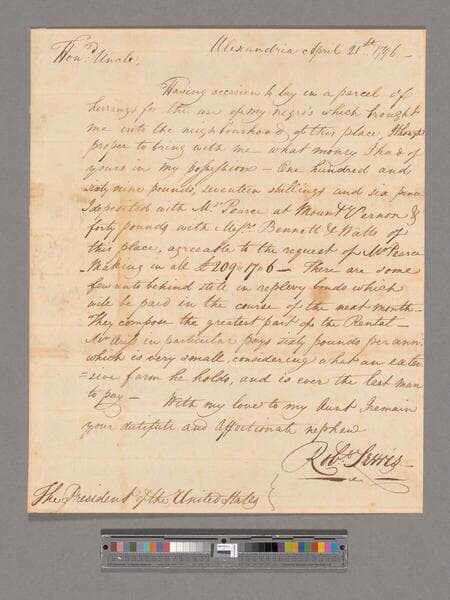 Alexandria April 21st. 1796 —
Hond. Uncle,
Having occasion to lay in a parcel of
herrings for the use of my negro's which brought
me into the neighbourhood of this place, I thought
proper to bring with me what money I had of
yours in my possession — One hundred and
sixty nine pounds, seventeen shillings and six pence
I deposited with Mr. Pearce at Mount Vernon &
forty pounds with Messrs. Bennett & Watts of
this place, agreeable to the request of Mr. Pearce
Making in all £209.17.6 — There are some
few rents behind still in replevy bonds which
will be paid in the course of the next month —
They compose the greatest part of the Rental —
Mr. in particular pays sixty pounds per ann:
which is very small, considering what an exten
=sive farm he holds, and is ever the last man
to pay — With my love to my Aunt I remain
your dutiful and affectionate nephew
Robt. Lewis
The President of the United States